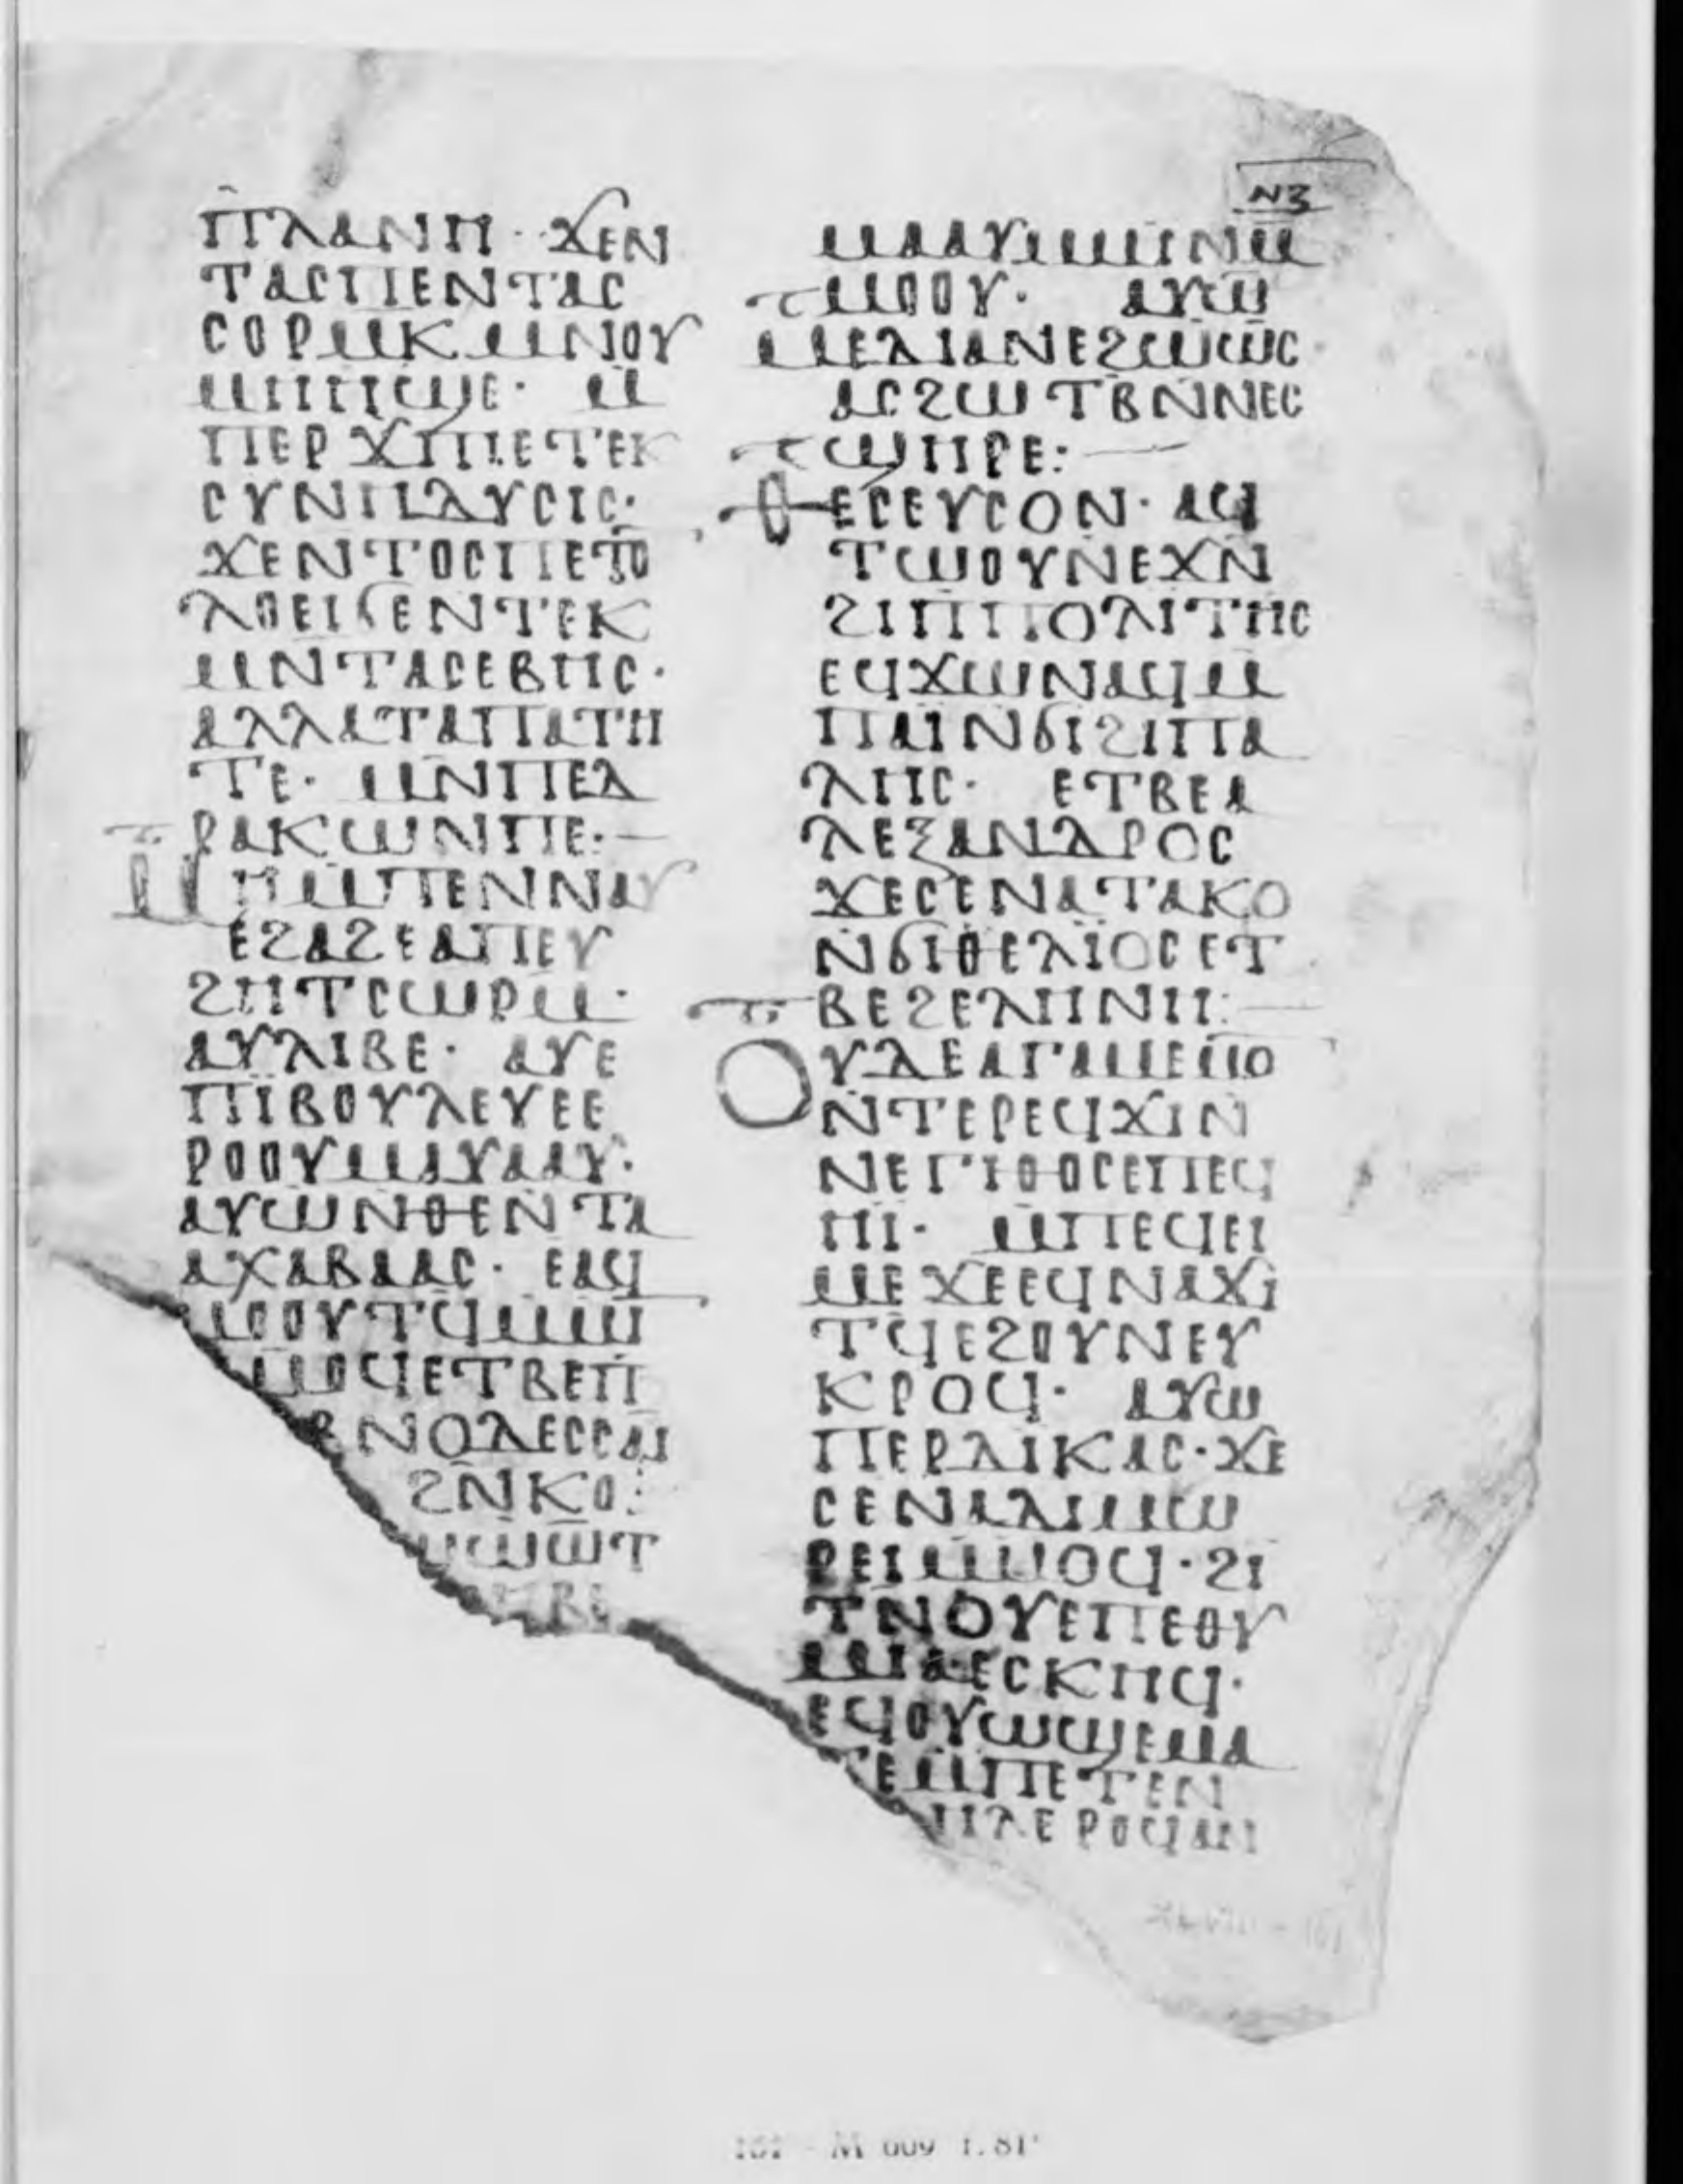 ⲛⲍ
ⲡⲗⲁⲛⲏ· ϫⲉⲛ
ⲧⲁⲥⲡⲉⲛⲧⲁⲥ
ⲥⲟⲣⲙⲕ ⲙⲛⲟⲩ
ⲙⲏⲏϣⲉ· ⲙ
ⲡⲉⲣϫⲡⲓⲉⲧⲉⲕ
ⲥⲩⲛⲏⲇⲩⲥⲓⲥ·
ϫⲉⲛⲧⲟⲥⲡⲉⲧⲟ
ⲗⲟⲉⲓϭⲉⲛⲧⲉⲕ
ⲙⲛⲧⲁⲥⲉⲃⲏⲥ·
ⲁⲗⲗⲁⲧⲁⲡⲁⲧⲏ
ⲧⲉ· ⲙⲛⲡⲉⲇ
ⲣⲁⲕⲱⲛⲡⲉ:
ⲙⲏⲙⲡⲉⲛⲛⲁⲩ
ⲉϩⲁϩⲉⲁⲡⲉⲩ
ϩⲏⲧⲥⲱⲣⲙ·
ⲁⲩⲗⲓⲃⲉ· ⲁⲩⲉ
ⲡⲓⲃⲟⲩⲗⲉⲩⲉⲉ
ⲣⲟⲟⲩⲙⲙⲁⲩⲁⲁⲩ·
ⲁⲩⲱⲛⲑⲉⲛⲧⲁ
ⲁⲭⲁⲃⲁⲁⲥ· ⲉⲁϥ
ⲙⲟⲟⲩⲧϥⲙⲙⲓⲛ
ⲙⲙⲟϥⲉⲧⲃⲉⲡ
ⲃⲛⲟⲗⲉⲥⲥⲁⲓ
ϩⲛⲕⲟ
ϣⲱⲱⲧ
ⲙⲁⲁⲩⲙⲙⲓⲛⲙ
ⲙⲟⲟⲩ· ⲁⲩⲱ
ⲙⲉⲇⲓⲁⲛⲉϩⲱⲱⲥ
ⲁⲥϩⲱⲧⲃⲛⲛⲉⲥ
ϣⲏⲣⲉ:
ⲑⲉⲥⲉⲩⲥⲟⲛ· ⲁϥ
ⲧⲱⲟⲩⲛⲉϫⲛ
ϩⲓⲡⲡⲟⲗⲓⲧⲏⲥ
ⲉϥϫⲱⲛⲁϥⲙ
ⲡⲁⲓⲛϭⲓϩⲓⲡⲡⲁ
ⲗⲏⲥ· ⲉⲧⲃⲉⲁ
ⲗⲉⲝⲁⲛⲇⲣⲟⲥ
ϫⲉⲥⲉⲛⲁⲧⲁⲕⲟ
ⲛϭⲓⲑⲉⲗⲓⲟⲥⲉⲧ
ⲃⲉϩⲉⲗⲏⲛⲏ:
ⲟⲩⲇⲉⲁⲅⲁⲙⲉⲙⲛⲟ
ⲛⲧⲉⲣⲉϥϫⲓⲛ
ⲛⲉⲅⲓⲑⲟⲥⲉⲡⲉϥ
ⲏⲓ· ⲙⲡⲉϥⲉⲓ
ⲙⲉϫⲉⲉϥⲛⲁϫⲓ
ⲧϥⲉϩⲟⲩⲛⲉⲩ
ⲕⲣⲟϥ· ⲁⲩⲱ
ⲡⲉⲣⲇⲓⲕⲁⲥ·ϫⲉ
ⲥⲉⲛⲁⲇⲓⲙⲱ
ⲣⲉⲓⲙⲙⲟϥ·ϩⲓ
ⲧⲛⲟⲩⲉⲡⲉⲑⲩ
ⲙⲓⲁⲉⲥⲕⲏϥ·
ⲉϥⲟⲩⲱϣⲉⲙⲁ
ⲧⲉⲙⲡⲉⲧⲉⲛ
ⲏⲗⲉⲣⲟϥⲁⲛ